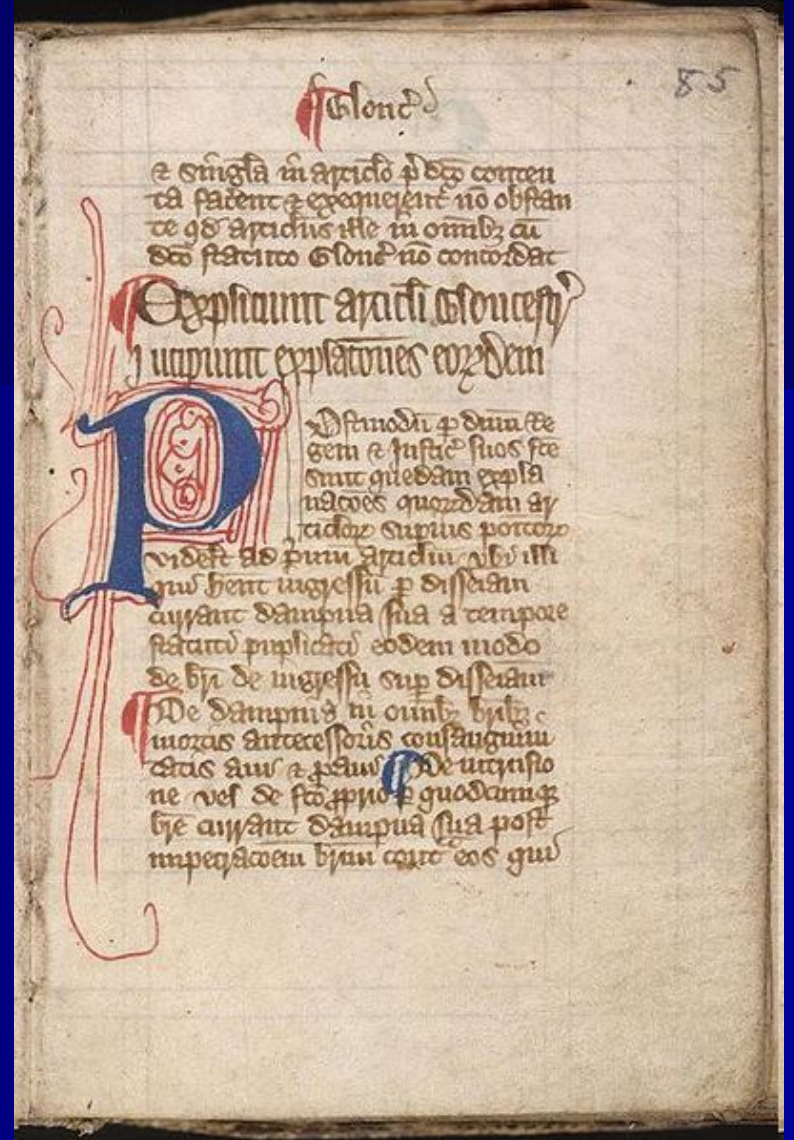 85
Glouc̃
⁊ singl̃a in articlo p̃dc̃o conten
ta facent ⁊ exequerent̃ nõ obstan
te qd̃ articlus ille in om̃ibꝫ cũ
dc̃o statuto Glouc̃ nõ concordat
Expliciunt articl̃i Gloucestr̃
Incipiunt explac̃ones eoꝝdem
Ostmodũ ꝑ dñm Re
gem ⁊ Justic̃ suos fc̃e
sunt quedam expla
nac̃oes quorũdam ar
ticloꝝ supius positoꝝ
videlt̃ ad p̃mũ articlũ vbi illi
qui hẽnt ingressũ ꝑ disseiam
currant dampna sua a tempore
statuti puplicati eodem modo
de br̃i de ingressu suꝑ disseiam
De dampnis in om̃ibꝫ bribꝫ
mortis antecessoris consanguini
tatis aui ⁊ ꝓaui De intrusio
ne vel de fc̃o ꝓprio ꝑ quodcumqꝫ
br̃e currant dampna sua post
impetrac̃oem br̃ium eos qui